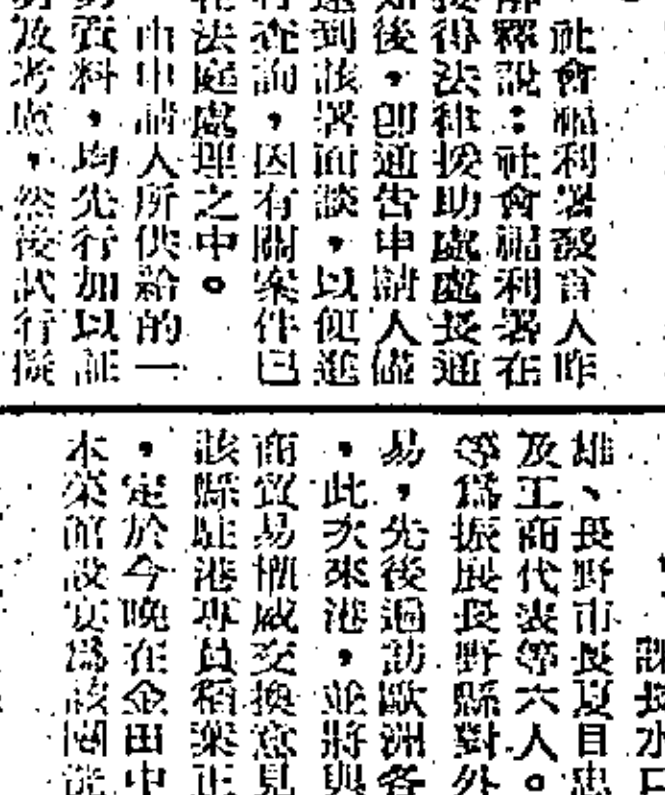 社會福利署發言人昨
釋說：社會福利署在
接得法律援助處處長通
知後，即通告申請人儘
速到該署面談，以便進
行查詢，因有關案件已
在法庭處理之中。
由申請人所供給的一
資料，均先行加以証
及考慮，然後試行擬
課長水口
雄、長野市長夏目忠
及工商代表等六人。
等為振展長野縣對外
易，先後過訪歐洲各
，此次來港，並將與
商貿易權威交換意見
該縣駐港專員稻葉正
，定於今晚在金田中
本菜館設宴為該團洗